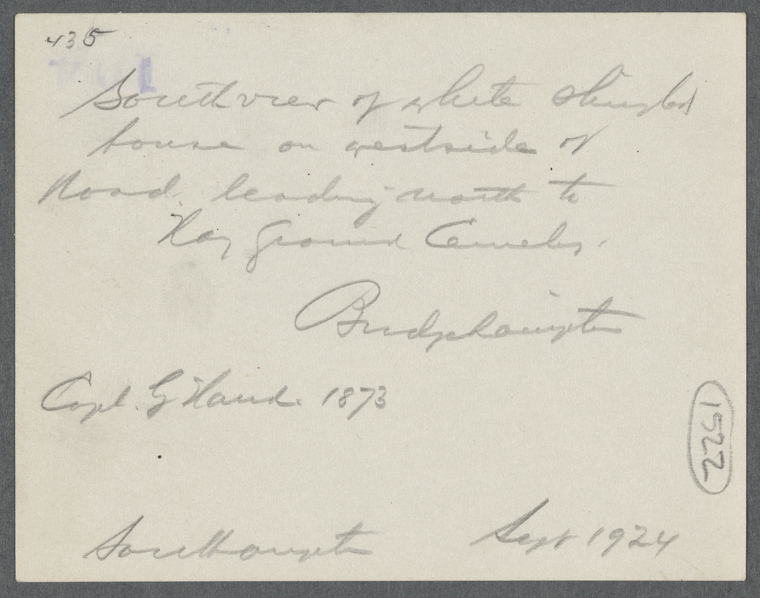 435
South view of white shingled
house on westside of
Road leading north to
Hay Ground Cemetery.
Bridgehampton
Capt. G. Hand 1873
1522
Southampton Sept 1924